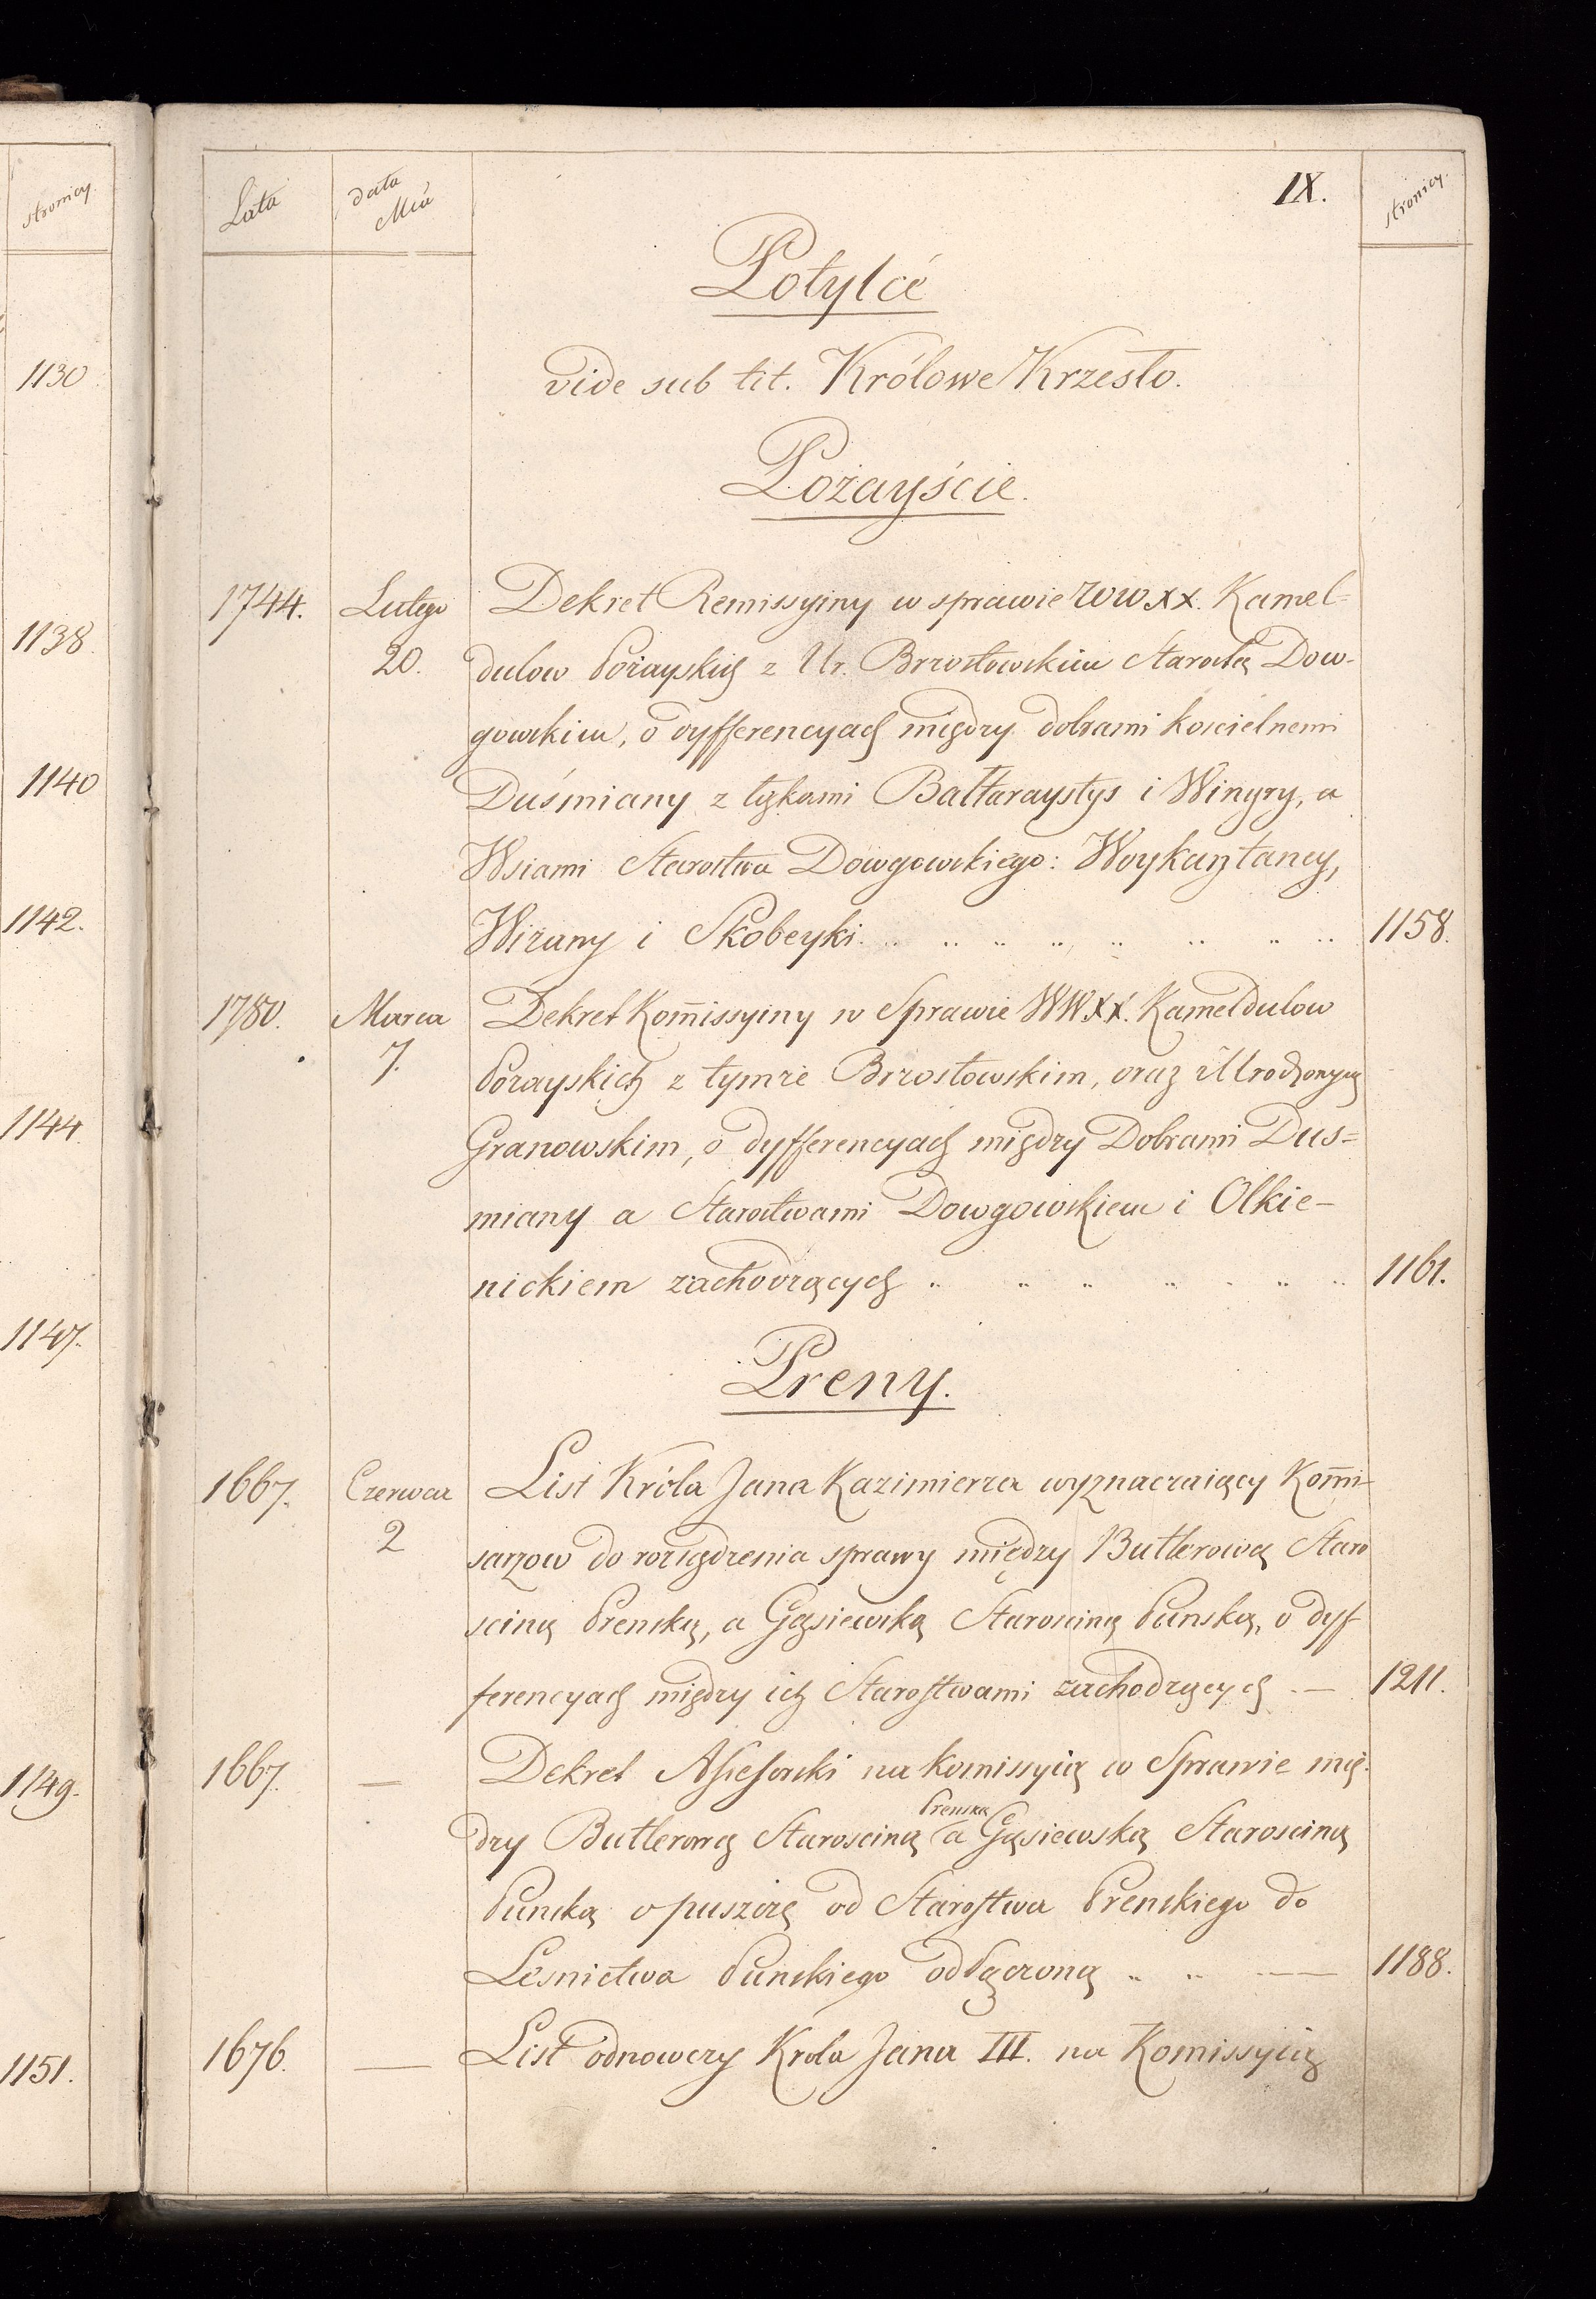 stronicy.
1130
1138.
1140
1142.
1144.
1147.
1149.
1151.
Lata
data
Mca
IX.
stronicy.
Potylcé
vide sub tit. Królowe Krzesło.
Pożayście.
1744. Lutego Dekret Remissyiny w sprawie WW XX. Kamel=
20. dulow Pożayskich z Ur. Brzostowskim Starostą Dow-
gowskim, o dyfferencyach między dobrami koscielnemi
Duśmiany z łąkami Bałtaraystys i Wingry, a
Wsiami Starostwa Dowgowskiego: Woykaztancy,
Wizany i Skobeyki. 1158.
1780. Marca Dekret Kom̄issyiny w Sprawie WWXX. Kameldulow
7. Pozayskich z tymże Brzostowskim, oraz Urodzonym
Granowskim, o dyfferencyach między Dobrami Dus=
miany a Starostwami Dowgowskiem i Olkie-
nickiem zachodzących 1161.
Preny.
1667. Czerwca List Króla Jana Kazimierza wyznaczaiący Kom̄i-
2 sarzow do roziądzenia sprawy między Butlerową Staro
sciną Prenską, a Gąsiewską Starosciną Punską, o dyf
ferencyach między ich Starostwami zachodzących — 1211.
1667. — Dekret Assessorski na komissyią w Sprawie mię-
Prenską
dzy Butlerową Starosciną a Gąsiewską Starosciną
Punską o puszczę od Starostwa Prenskiego do
Leśnictwa Punskiego odłączoną — 1188.
1676. — List odnowczy Krola Jana III. na Komissyią